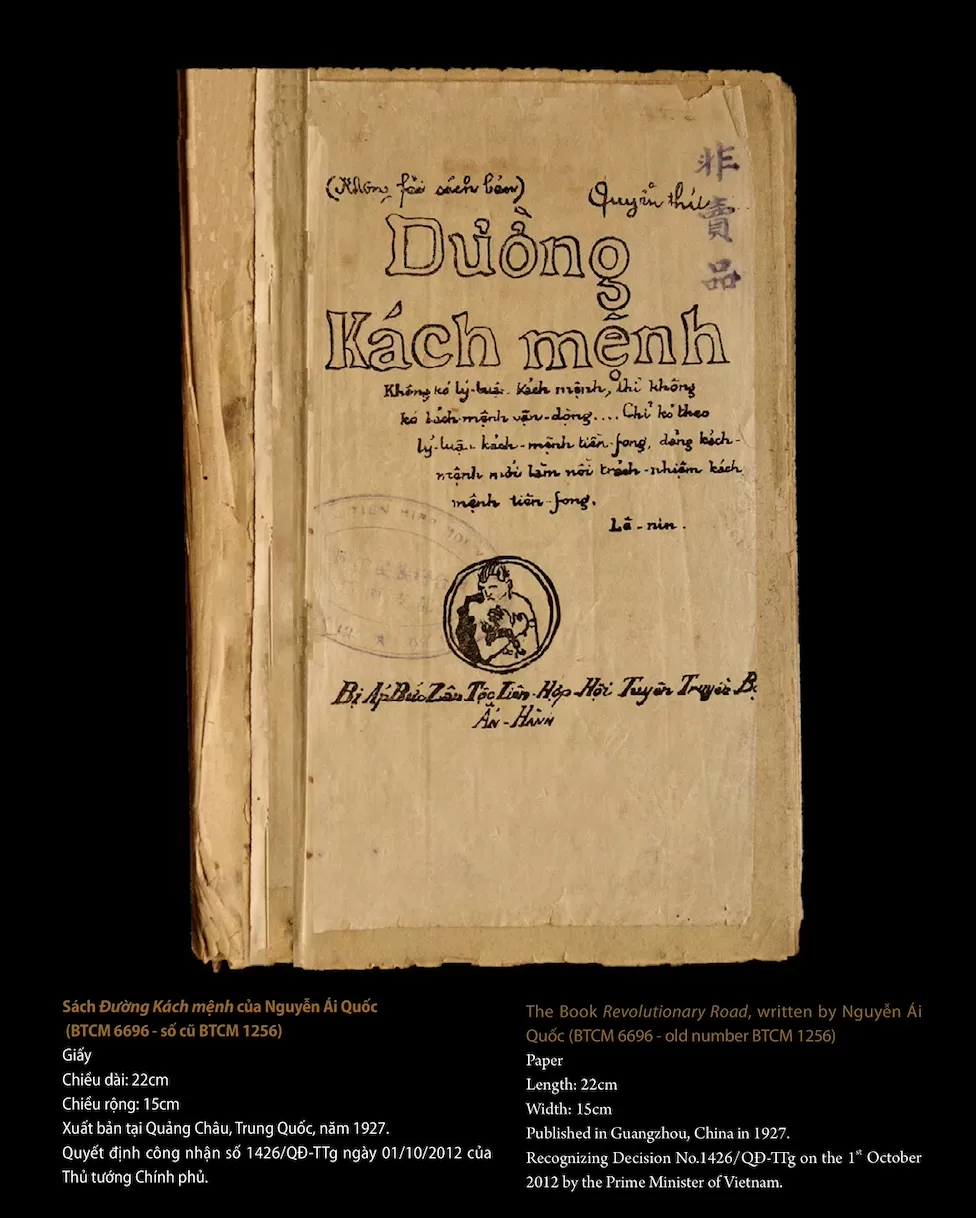 (Không fải sách bán)
Quyển thứ
非賣品
Đường
Kách mệnh
Không kó lý-luận kách mệnh, thì không
kó kách-mệnh vận-động.... Chỉ kó theo
lý-luận kách-mệnh tiền-fong, đảng kách-
mệnh mới làm nổi trách-nhiệm kách
mệnh tiền-fong.
Lê-nin.
Bị Áp Bức Zân Tộc Liên-Hợp Hội Tuyên Truyền Bộ
Ấn-Hành
Sách Đường Kách mệnh của Nguyễn Ái Quốc
(BTCM 6696 - số cũ BTCM 1256)
Giấy
Chiều dài: 22cm
Chiều rộng: 15cm
Xuất bản tại Quảng Châu, Trung Quốc, năm 1927.
Quyết định công nhận số 1426/QĐ-TTg ngày 01/10/2012 của
Thủ tướng Chính phủ.
The Book Revolutionary Road, written by Nguyễn Ái
Quốc (BTCM 6696 - old number BTCM 1256)
Paper
Length: 22cm
Width: 15cm
Published in Guangzhou, China in 1927.
Recognizing Decision No.1426/QĐ-TTg on the 1st October
2012 by the Prime Minister of Vietnam.